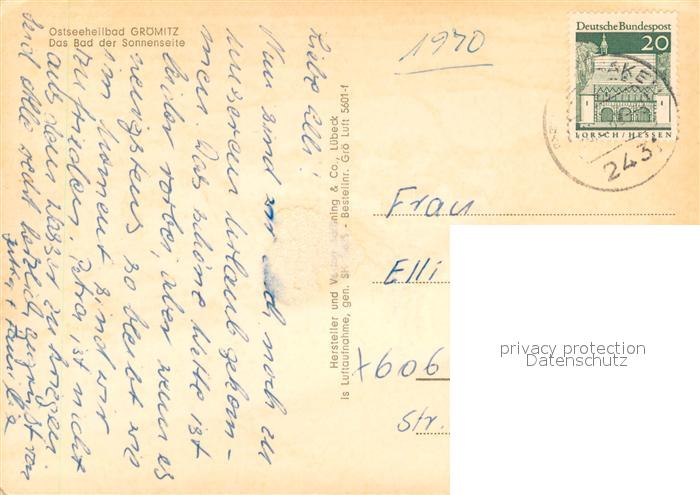 Ostseeheilbad GRÖMITZ
Das Bad der Sonnenseite
Liebe Elli!
Nun sind wir noch zu
unserem Urlaub gekom-
men. Das schöne Wetter ist
leider vorbei, aber wenn es
wenigstens so bleibt wie
im Moment sind wir
zufrieden. Petra ist nicht
aus dem Wasser zu kriegen.
Seid alle recht herzlich gegrüßt von
Familie
Hersteller und Schöning & Co., Lübeck
Luftaufnahme, gen. - Bestellnr. Grö Luft 5601-f
1970
Deutsche Bundespost
20
LORSCH/HESSEN
243
Frau
Elli
606
Str.
privacy protection
Datenschutz